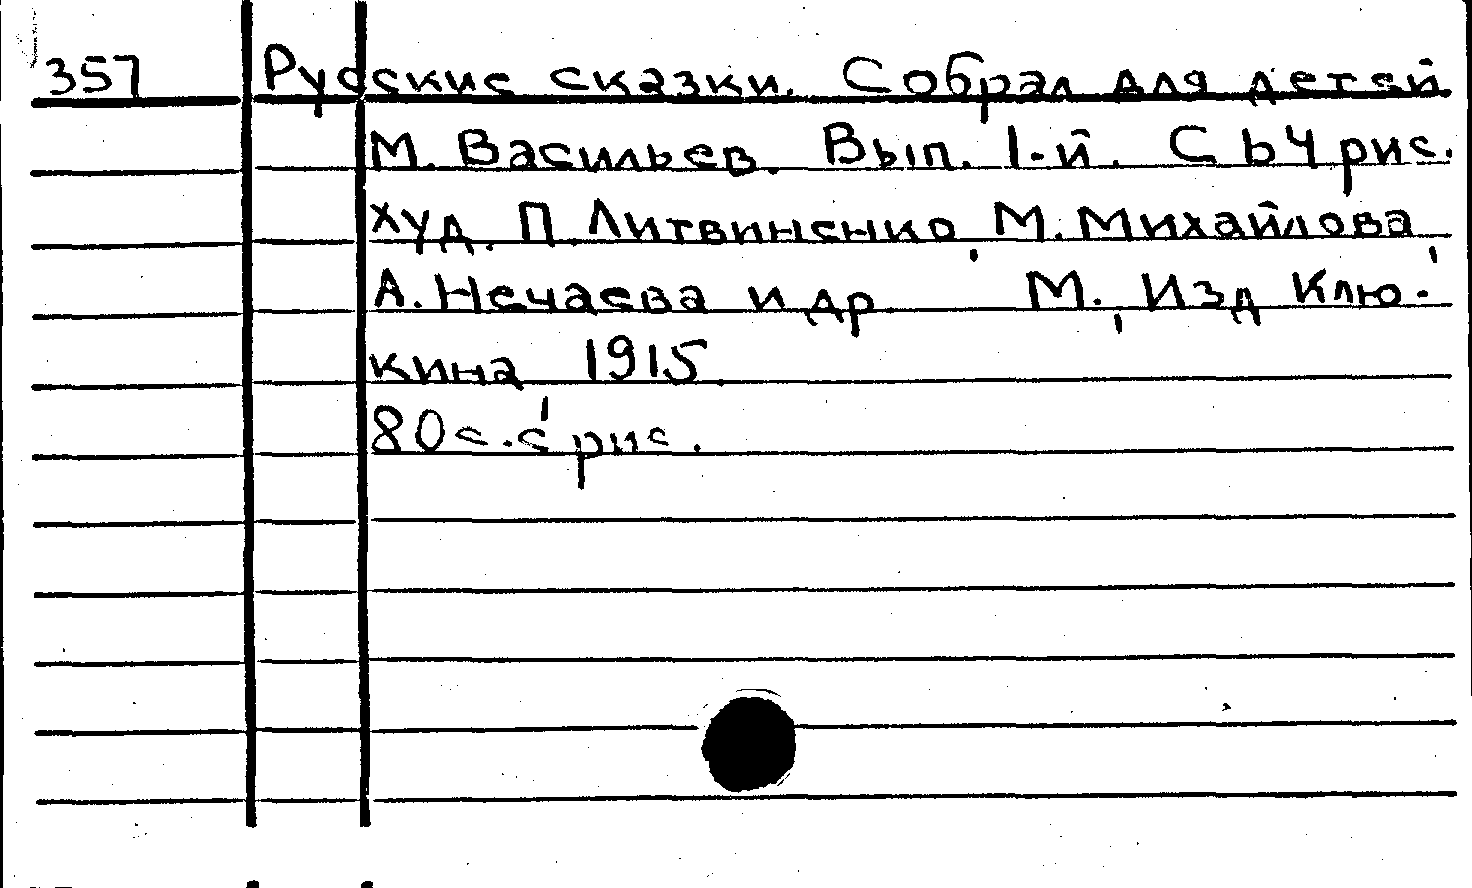 357 Русские сказки. Собрал для детей
М. Васильев. Вып. 1-й. С 64 рис.
худ. П. Литвиненко, М. Михайлова,
А. Нечаева и др М., Изд Клю-
кина, 1915.
80с. с рис.